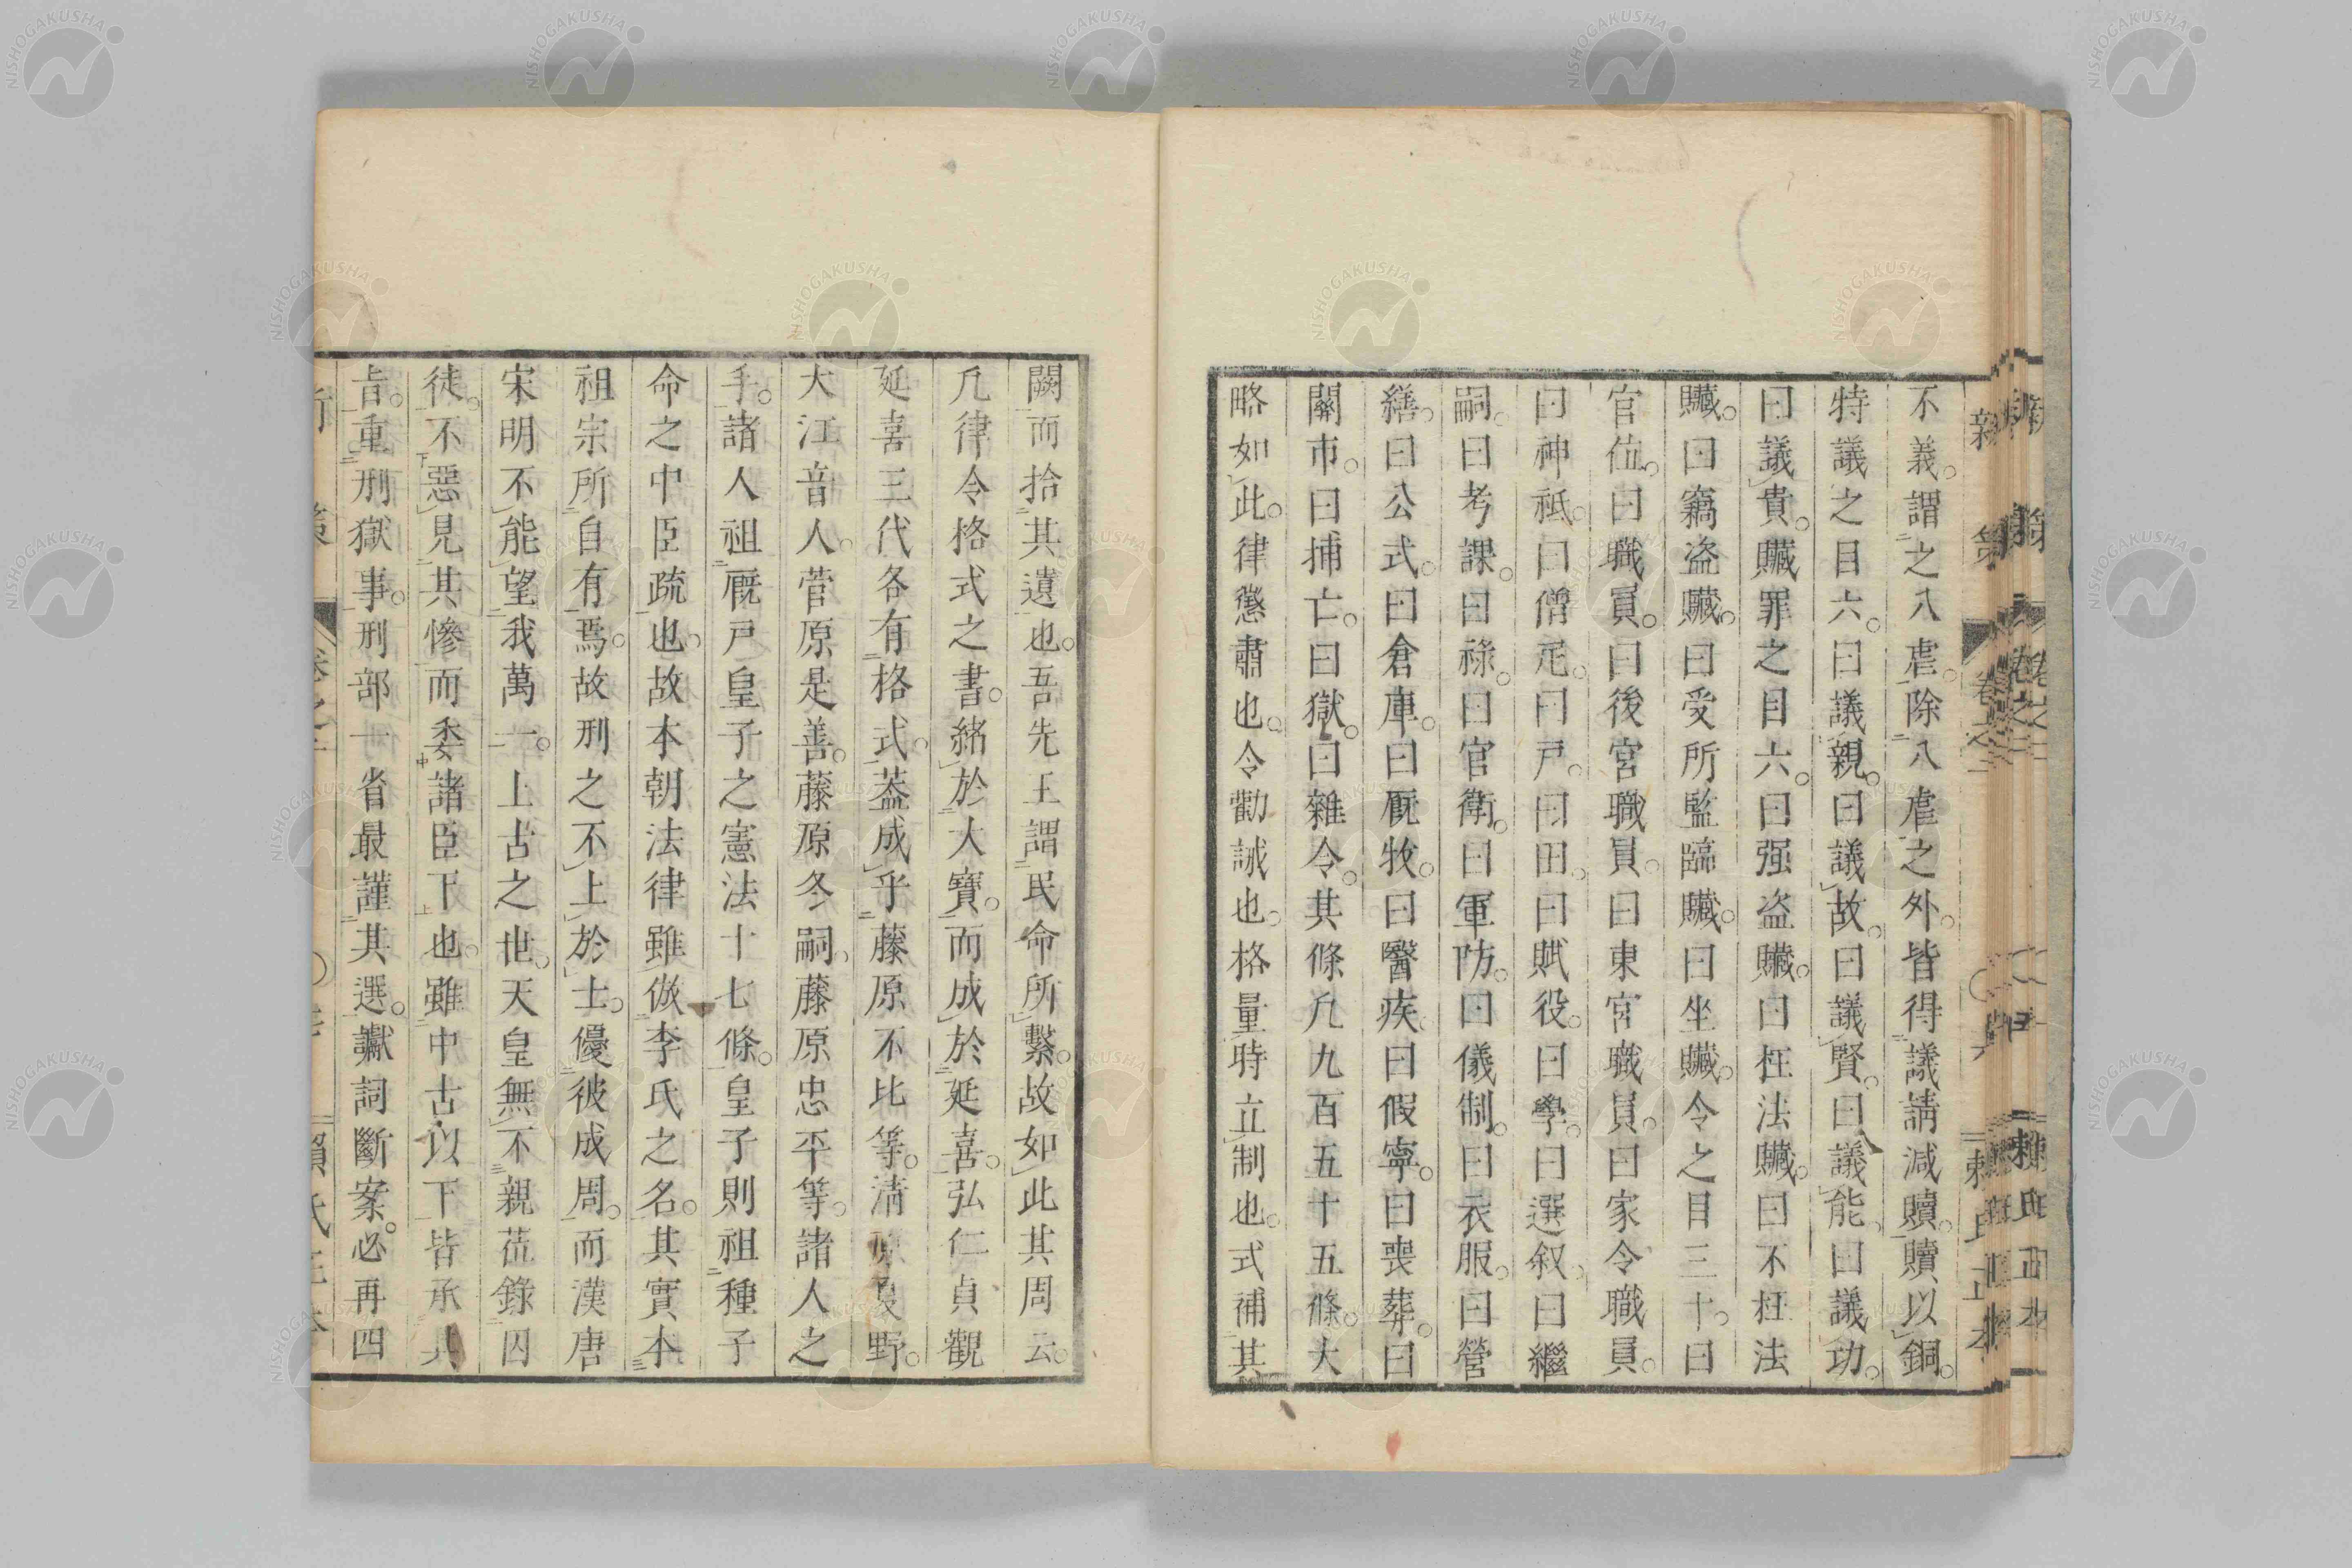 不義。謂之八虐。除八虐之外。皆得議請減贖。贖以銅。
特議之目六。曰議親。曰議故。曰議賢。曰議能。曰議功。
曰議貴。贓罪之目六。曰强盗贓。曰枉法贓。曰不枉法
贓。曰竊盗贓。曰受所監臨贓。曰坐贓。令之目三十。曰
官位。曰職員。曰後宮職員。曰東宮職員。曰家令職員。
曰神祇。曰僧尼。曰戸。曰田。曰賦役。曰學。曰選叙。曰繼
嗣。曰考課。曰祿。曰官衛。曰軍防。曰儀制。曰衣服。曰營
繕。曰公式。曰倉庫。曰厩牧。曰醫疾。曰假寧。曰喪葬。曰
關市。曰捕亡。曰獄。曰雜令。其條凡九百五十五條。大
略如此。律懲肅也。令勸誡也。格量時立制也。式補其
闕而拾其遺也。吾先王謂民命所繫。故如此其周云。
凡律令格式之書。緒於大寶。而成於延喜。弘仁貞觀
延喜三代各有格式。葢成乎藤原不比等。淸原夏野。
大江音人。菅原是善。藤原冬嗣。藤原忠平等。諸人之
手。諸人祖厩戸皇子之憲法十七條。皇子則祖種子
命之中臣疏也。故本朝法律雖倣李氏之名。其實本
祖宗所自有焉。故刑之不上於士。優彼成周。而漢唐
宋明不能望我萬一。上古之世。天皇無不親莅錄囚
徒。不惡見其慘而委諸臣下也。雖中古以下皆承其
旨。重刑獄事。刑部一省最謹其選。讞詞斷案。必再四
新 策 卷之二 六 賴氏正本
NISHOGAKUSHA